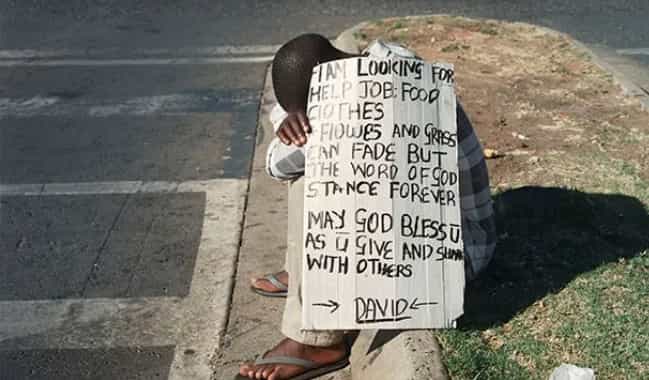 I AM LOOKING FOR
HELP JOB: FOOD
CLOTHES
FLOWES AND GRASS
CAN FADE BUT
THE WORD OF GOD
STANCE FOREVER
MAY GOD BLESS U
AS U GIVE AND SHARE
WITH OTHERS
→ DAVID ←